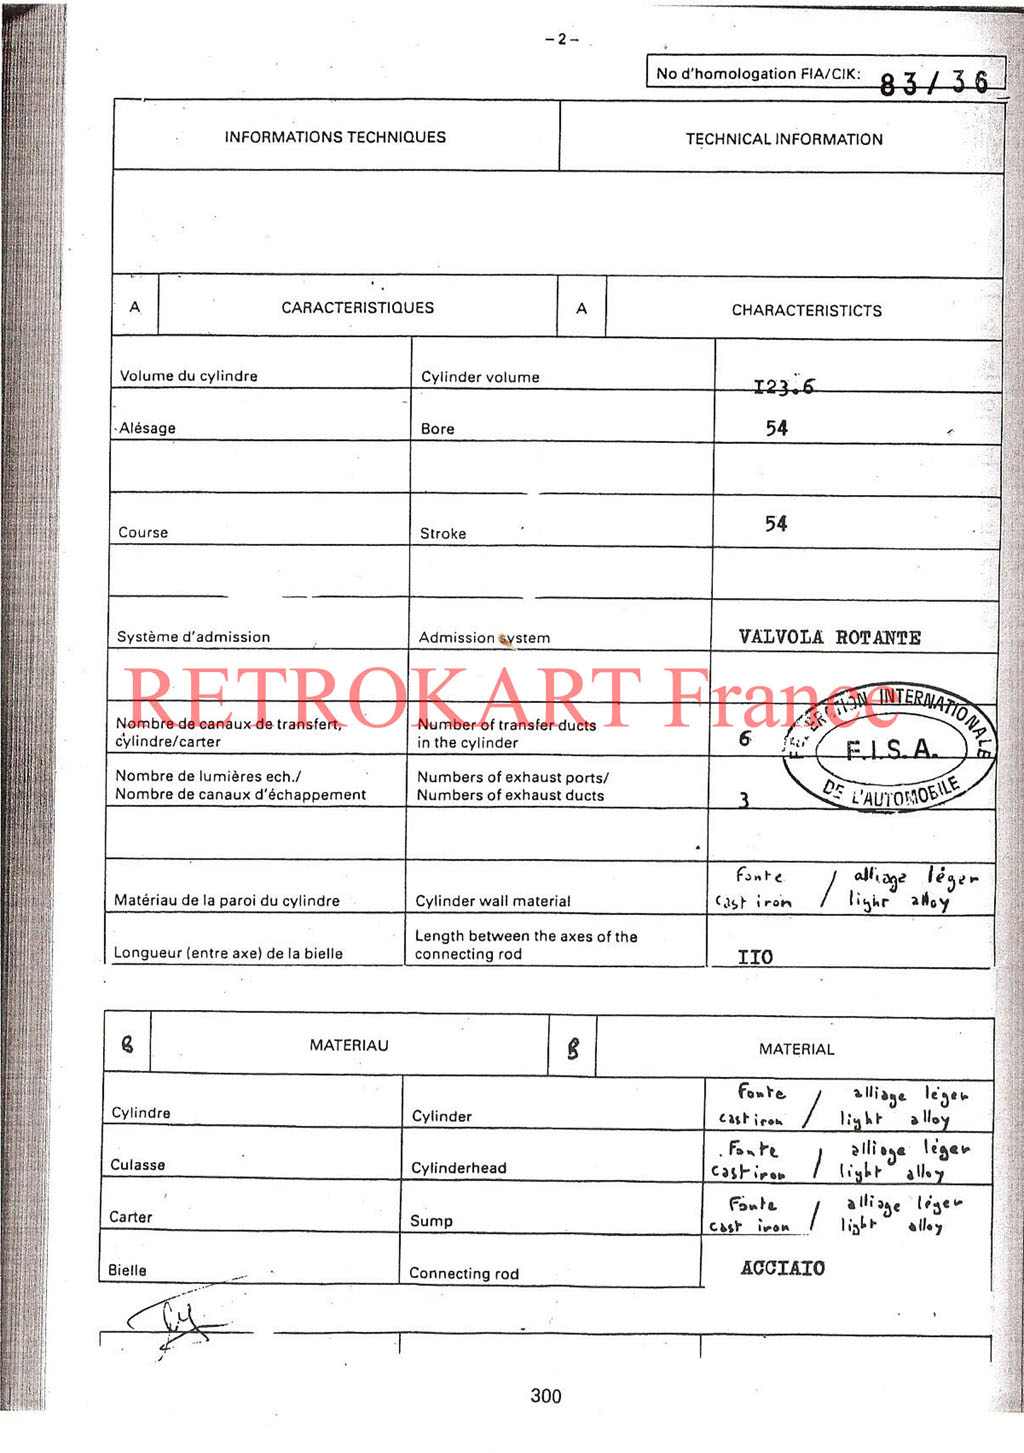 -2-
No d'homologation FIA/CIK: 83/36
INFORMATIONS TECHNIQUES TECHNICAL INFORMATION
A CARACTERISTIQUES A CHARACTERISTICTS
Volume du cylindre Cylinder volume I23.6
Alésage Bore 54
Course Stroke 54
Système d'admission Admission system VALVOLA ROTANTE
RETROKART France
Nombre de canaux de transfert, Number of transfer ducts
cylindre/carter in the cylinder 6
FEDERATION INTERNATIONALE
F.I.S.A.
DE L'AUTOMOBILE
Nombre de lumières ech./ Numbers of exhaust ports/
Nombre de canaux d'échappement Numbers of exhaust ducts 3
fonte / alliage léger
Matériau de la paroi du cylindre Cylinder wall material cast iron / light alloy
Length between the axes of the
Longueur (entre axe) de la bielle connecting rod IIO
B MATERIAU B MATERIAL
Fonte / alliage léger
Cylindre Cylinder cast iron / light alloy
Fonte / alliage léger
Culasse Cylinderhead cast iron / light alloy
Fonte / alliage léger
Carter Sump cast iron / light alloy
Bielle Connecting rod ACCIAIO
300